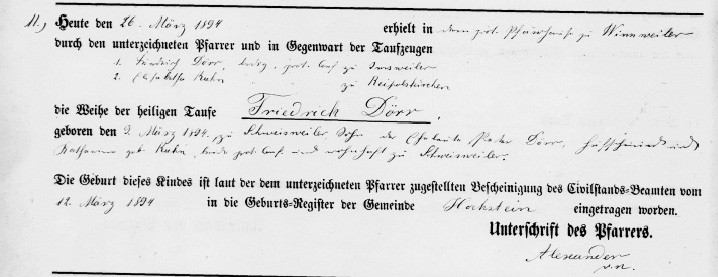 11.,
Heute den 26. März 1894 erhielt in dem prot. Pfarrhause zu Winnweiler
durch den unterzeichneten Pfarrer und in Gegenwart der Taufzeugen
1. Friedrich Dörr, ledig, prot. Conf. zu Imsweiler
2. Elisabetha Kuhn zu Reipoltskirchen
die Weihe der heiligen Taufe Friedrich Dörr,
geboren den 2. März 1894, zu Schweisweiler, Sohn der Eheleute Dörr, und
Katharina geb. Kuhn, beide prot. Conf. und wohnhaft zu Schweisweiler.
Die Geburt dieses Kindes ist laut der dem unterzeichneten Pfarrer zugestellten Bescheinigung des Civilstands-Beamten vom
12. März 1894 in die Geburts-Register der Gemeinde Hochstein eingetragen worden.
Unterschrift des Pfarrers.
Alexander
v.n.